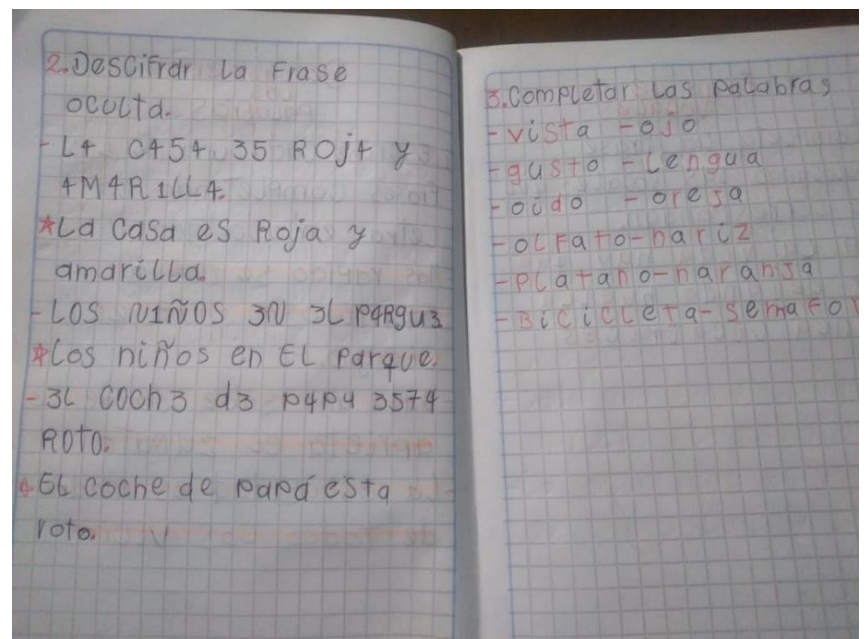 2.Descifrar La Frase
oculta.
- L4 C454 35 ROJ4 y
4M4R1LL4.
*La Casa es Roja y
amarilla.
- LOS N1ÑOS 3N 3L P4Rqu3
*Los niños en EL Parque.
- 3L COCh3 d3 P4P4 3574
ROTO.
*EL coche de papá esta
roto.
3.Completar Las Palabras
- vista - ojo
- gusto - Lengua
- oido - oreja
- OLFato - nariz
- PLatano - naranja
- BiCiCLeta - semafor